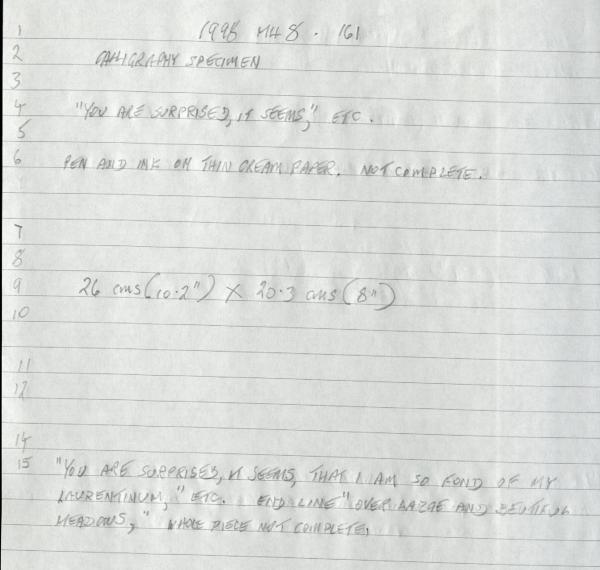 1 1998 MH 8 . 161
2 CALLIGRAPHY SPECIMEN
3
4 "YOU ARE SURPRISED, IT SEEMS," ETC.
5
6 PEN AND INK ON THIN CREAM PAPER. NOT COMPLETE.
7
8
9 26 cms (10.2") X 20.3 cms (8")
10
11
12
14
15 "YOU ARE SURPRISED, IT SEEMS, THAT I AM SO FOND OF MY
LAURENTINUM," ETC. END LINE "OVER LARGE AND BEUTIFUL
MEADOWS," WHOLE PIECE NOT COMPLETE,